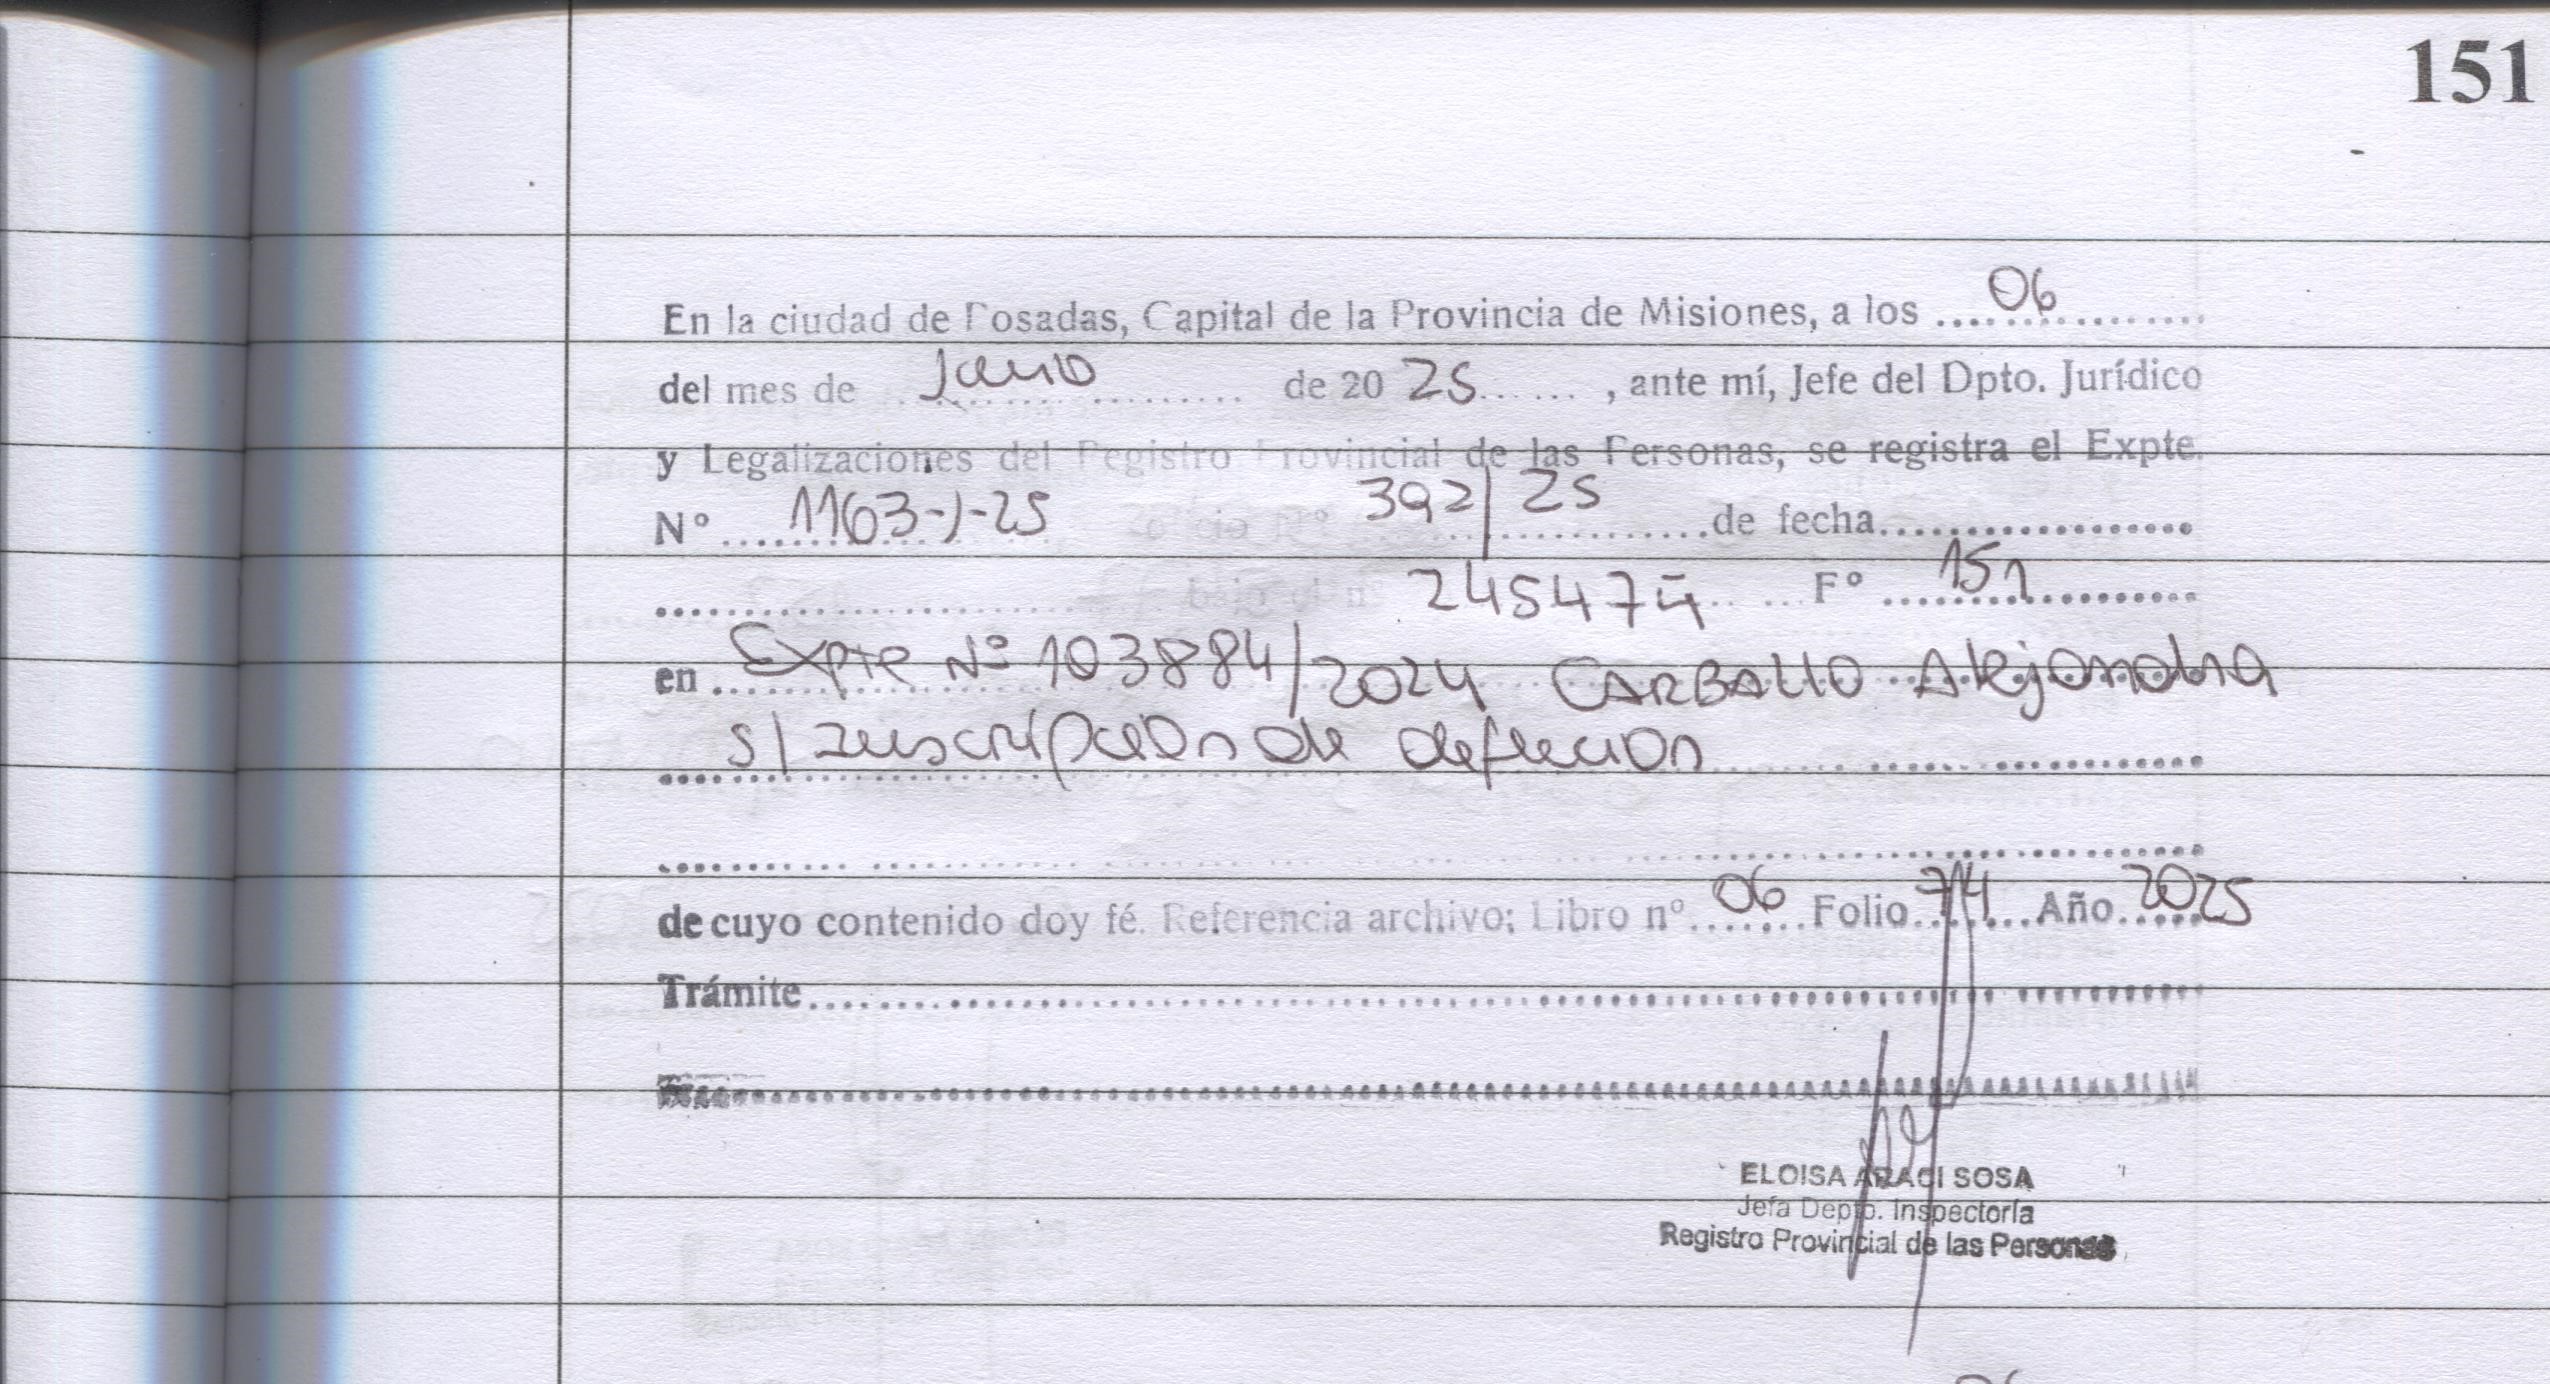 151
En la ciudad de Posadas, Capital de la Provincia de Misiones, a los 06
del mes de Junio de 2025, ante mí, Jefe del Dpto. Jurídico
y Legalizaciones del Registro Provincial de las Personas, se registra el Expte.
Nº 1163-J-25 392/25 de fecha
245474 Fº 151
en Expte Nº 103884/2024 CARBALLO Alejandra
s/ Inscripcion de defuncion
de cuyo contenido doy fé. Referencia archivo: Libro nº 06 Folio 74 Año 2025
Trámite
ELOISA ARACI SOSA
Jefa Depto. Inspectoría
Registro Provincial de las Personas